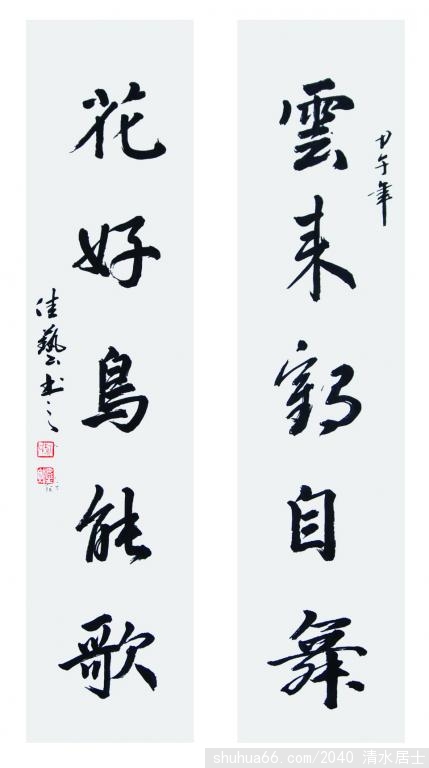 甲午年
雲来鹤自舞
花好鳥能歌
佳藝书之
shuhua66.com/2040 清水居士